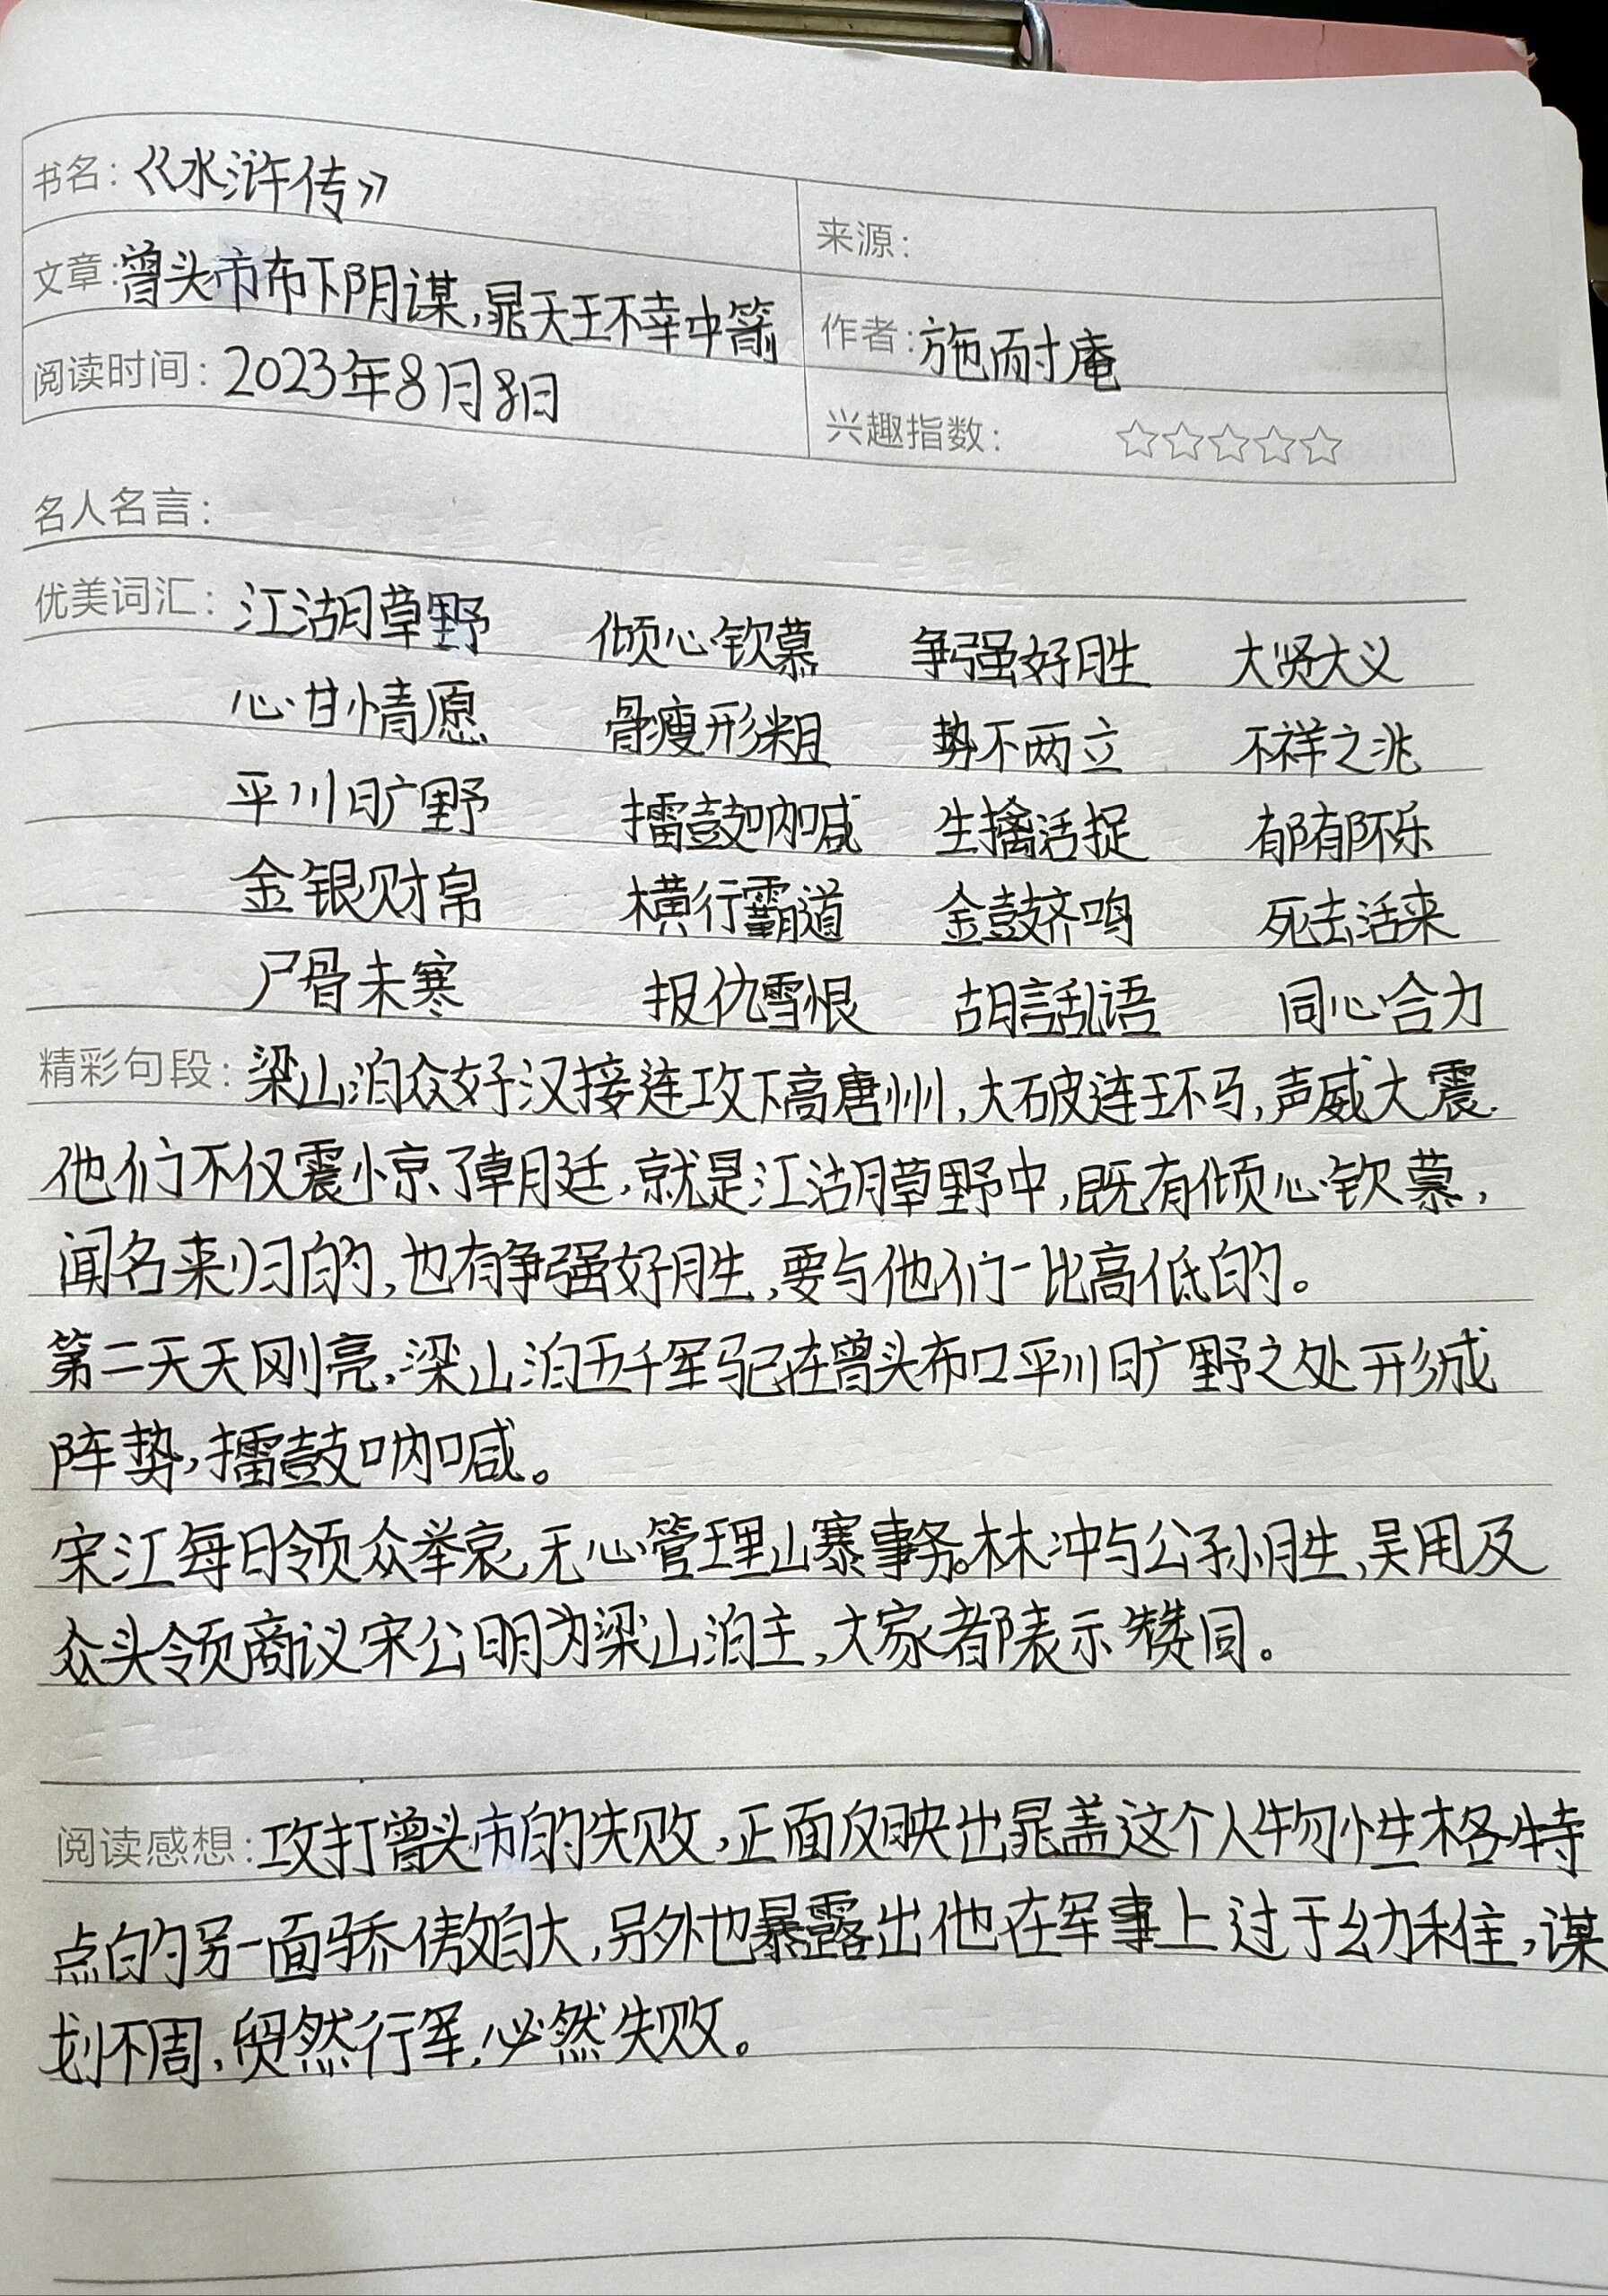 书名：《水浒传》
来源：
文章：曾头市布下阴谋，晁天王不幸中箭
作者：施耐庵
阅读时间：2023年8月8日
兴趣指数：☆☆☆☆☆
名人名言：
优美词汇：江湖草野 倾心钦慕 争强好胜 大贤大义
心甘情愿 骨瘦形粗 势不两立 不祥之兆
平川旷野 擂鼓呐喊 生擒活捉 郁郁不乐
金银财帛 横行霸道 金鼓齐鸣 死去活来
尸骨未寒 报仇雪恨 胡言乱语 同心合力
精彩句段：梁山泊众好汉接连攻下高唐州，大破连环马，声威大震.
他们不仅震惊了朝廷，就是江湖草野中，既有倾心钦慕，
闻名来归的，也有争强好胜，要与他们一比高低的。
第二天天刚亮，梁山泊五千军马已在曾头市口平川旷野之处形成
阵势，擂鼓呐喊。
宋江每日领众举哀，无心管理山寨事务。林冲与公孙胜，吴用及
众头领商议宋公明为梁山泊主，大家都表示赞同。
阅读感想：攻打曾头市的失败，正面反映出晁盖这个人物性格特
点的另一面骄傲自大，另外也暴露出他在军事上过于幼稚，谋
划不周，贸然行军，必然失败。